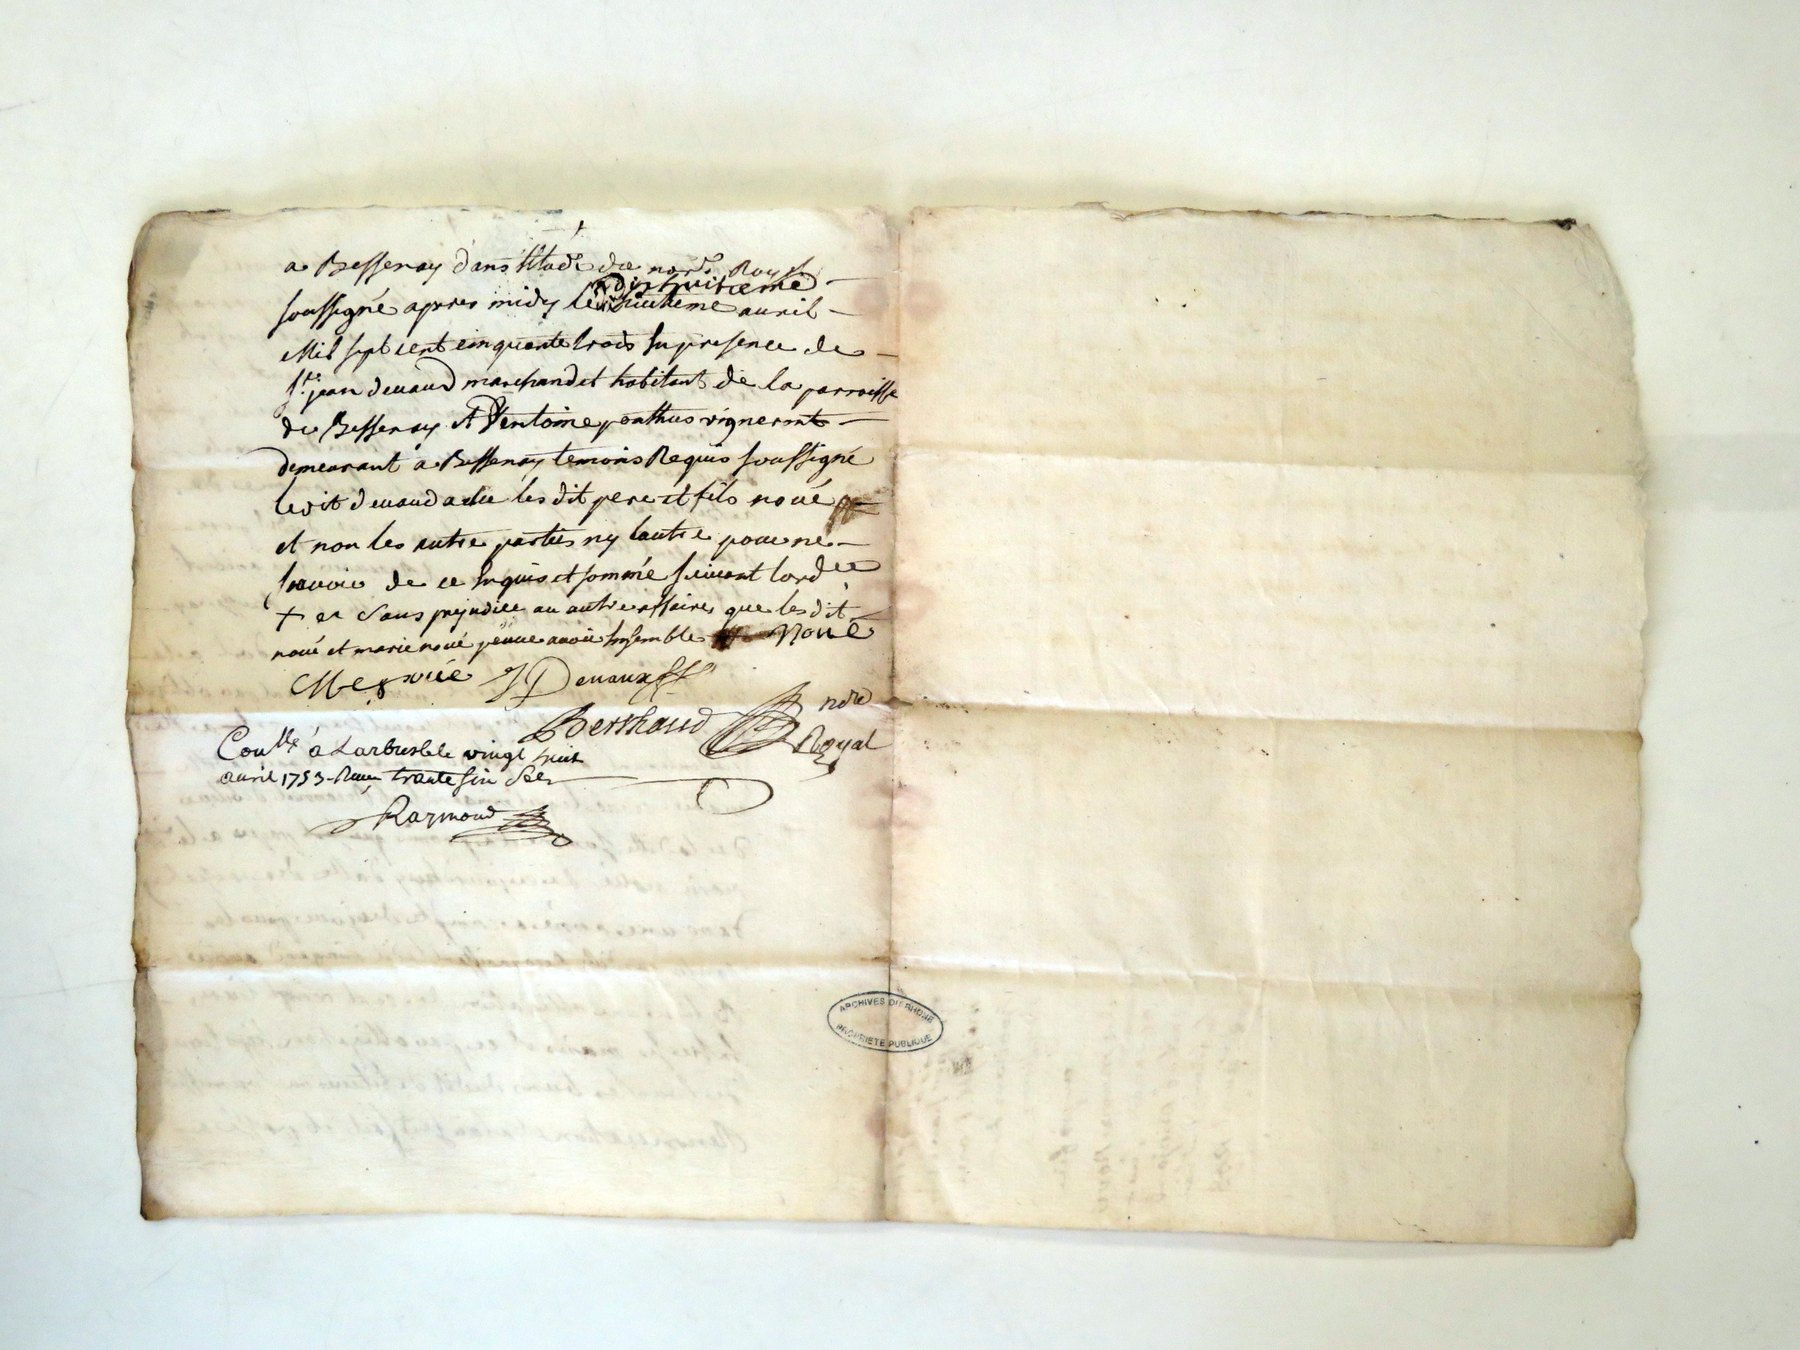 a Bessenay dans letude du no.re Royal
dixhuitieme
soussigné apres midy le huitieme avril
Mil sept cent cinquante trois En presence de
s.r jean devaud marchand et habitant de la parroisse
de Bessenay et Antoine ponthus vigneront
demeurant a Bessenay temoins Requis soussigné
ledit devaud avec les dit pere et fils noué
et non les autre parties ny lautre pour ne
scavoir de ce Enquis et sommé suivant lordre
+ et sans prejudice au autre affaires que les dit
noué et marie noué peuve avoir Ensemble Noué
noué J Devaux
Berthaud no.re
Royal
Con.lle a Larbresle le vingt huit
avril 1753 Reçu trante six sols
Raymond
ARCHIVES DU RHONE
PROPRIETE PUBLIQUE